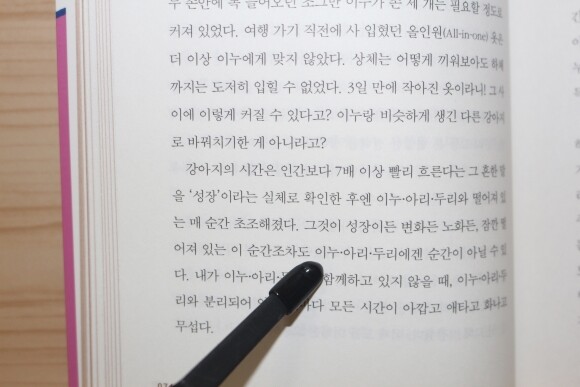 두 손안에 쏙 들어오던 조그만 이누가 손 세 개는 필요할 정도로
커져 있었다. 여행 가기 직전에 사 입혔던 올인원(All-in-one) 옷은
더 이상 이누에게 맞지 않았다. 상체는 어떻게 끼워보아도 하체
까지는 도저히 입힐 수 없었다. 3일 만에 작아진 옷이라니! 그 사
이에 이렇게 커질 수 있다고? 이누랑 비슷하게 생긴 다른 강아지
로 바꿔치기한 게 아니라고?
강아지의 시간은 인간보다 7배 이상 빨리 흐른다는 그 흔한 말
을 '성장'이라는 실체로 확인한 후엔 이누·아리·두리와 떨어져 있
는 매 순간 초조해졌다. 그것이 성장이든 변화든 노화든, 잠깐 떨
어져 있는 이 순간조차도 이누·아리·두리에겐 순간이 아닐 수 있
다. 내가 이누·아리· 함께하고 있지 않을 때, 이누·아리·두
리와 분리되어 마다 모든 시간이 아깝고 애타고 화나고
무섭다.